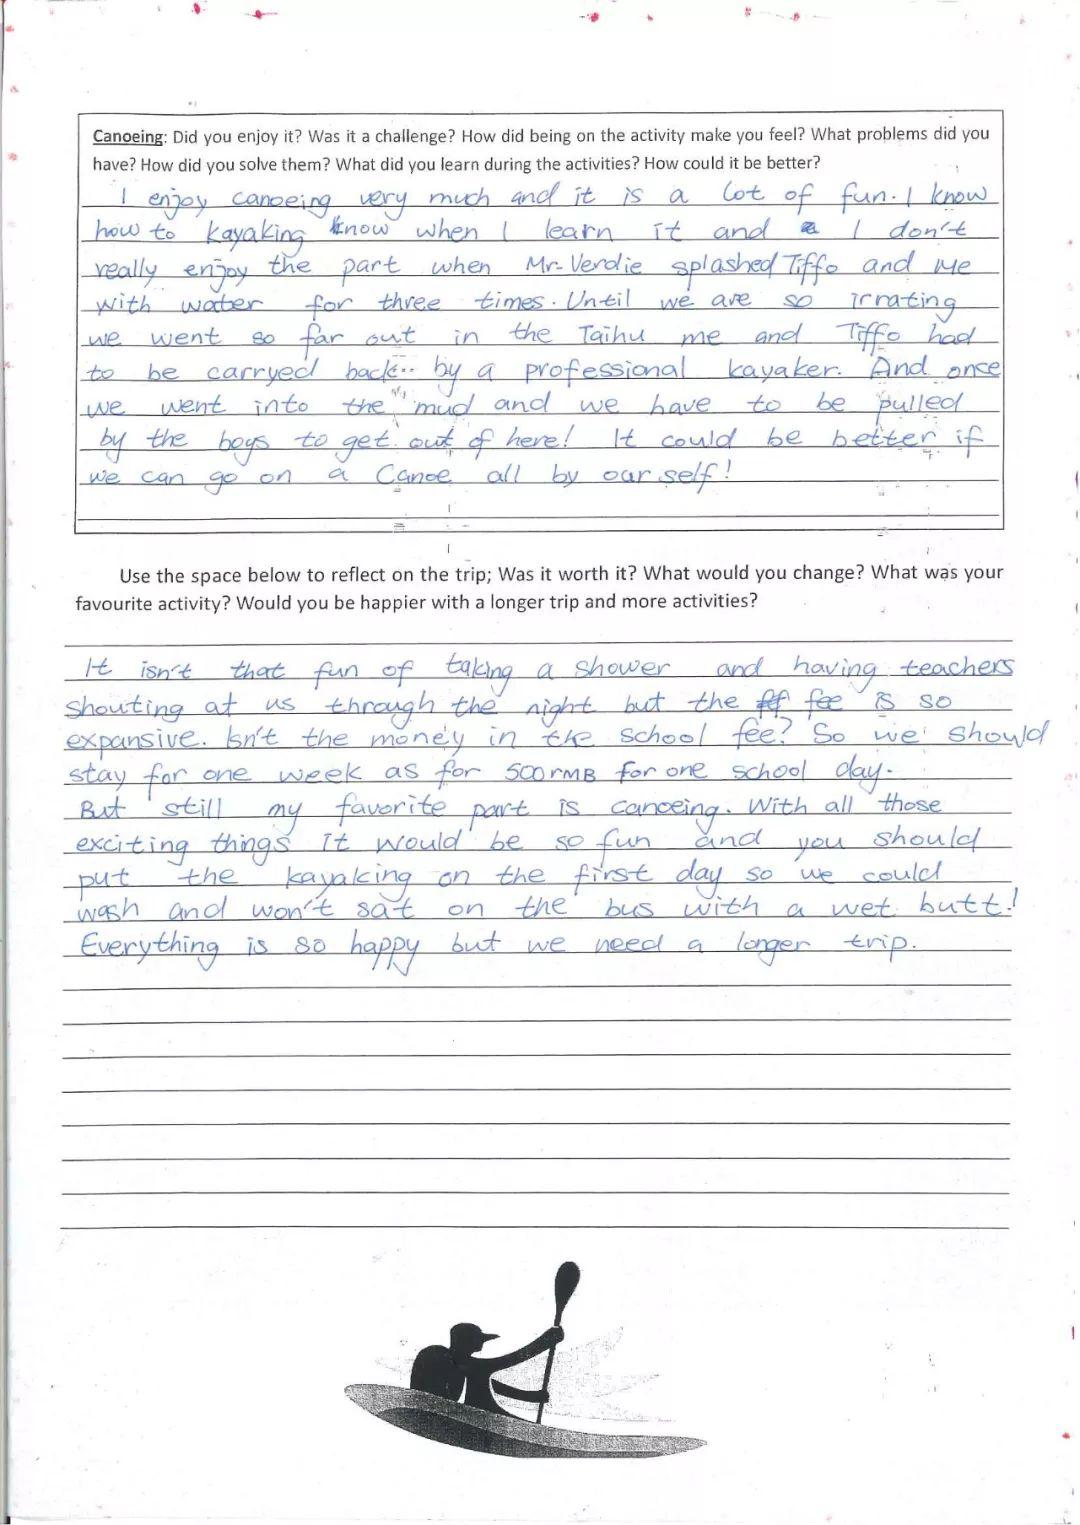 Canoeing: Did you enjoy it? Was it a challenge? How did being on the activity make you feel? What problems did you
have? How did you solve them? What did you learn during the activities? How could it be better?
I enjoy canoeing very much and it is a lot of fun. I know
how to kayaking know when I learn it and I don't
really enjoy the part when Mr. Verdie splashed Tiffo and me
with water for three times. Until we are so irrating
we went so far out in the Taihu me and Tiffo had
to be carryed back by a professional kayaker. And once
we went into the mud and we have to be pulled
by the boys to get out of here! It could be better if
we can go on a Canoe all by our self!
Use the space below to reflect on the trip; Was it worth it? What would you change? What was your
favourite activity? Would you be happier with a longer trip and more activities?
It isn't that fun of taking a shower and having teachers
shouting at us through the night but the fee is so
expansive. Isn't the money in the school fee? So we should
stay for one week as for 500rmB for one school day.
But still my favorite part is canoeing. With all those
exciting things it would be so fun and you should
put the kayaking on the first day so we could
wash and won't sat on the bus with a wet butt!
Everything is so happy but we need a longer trip.